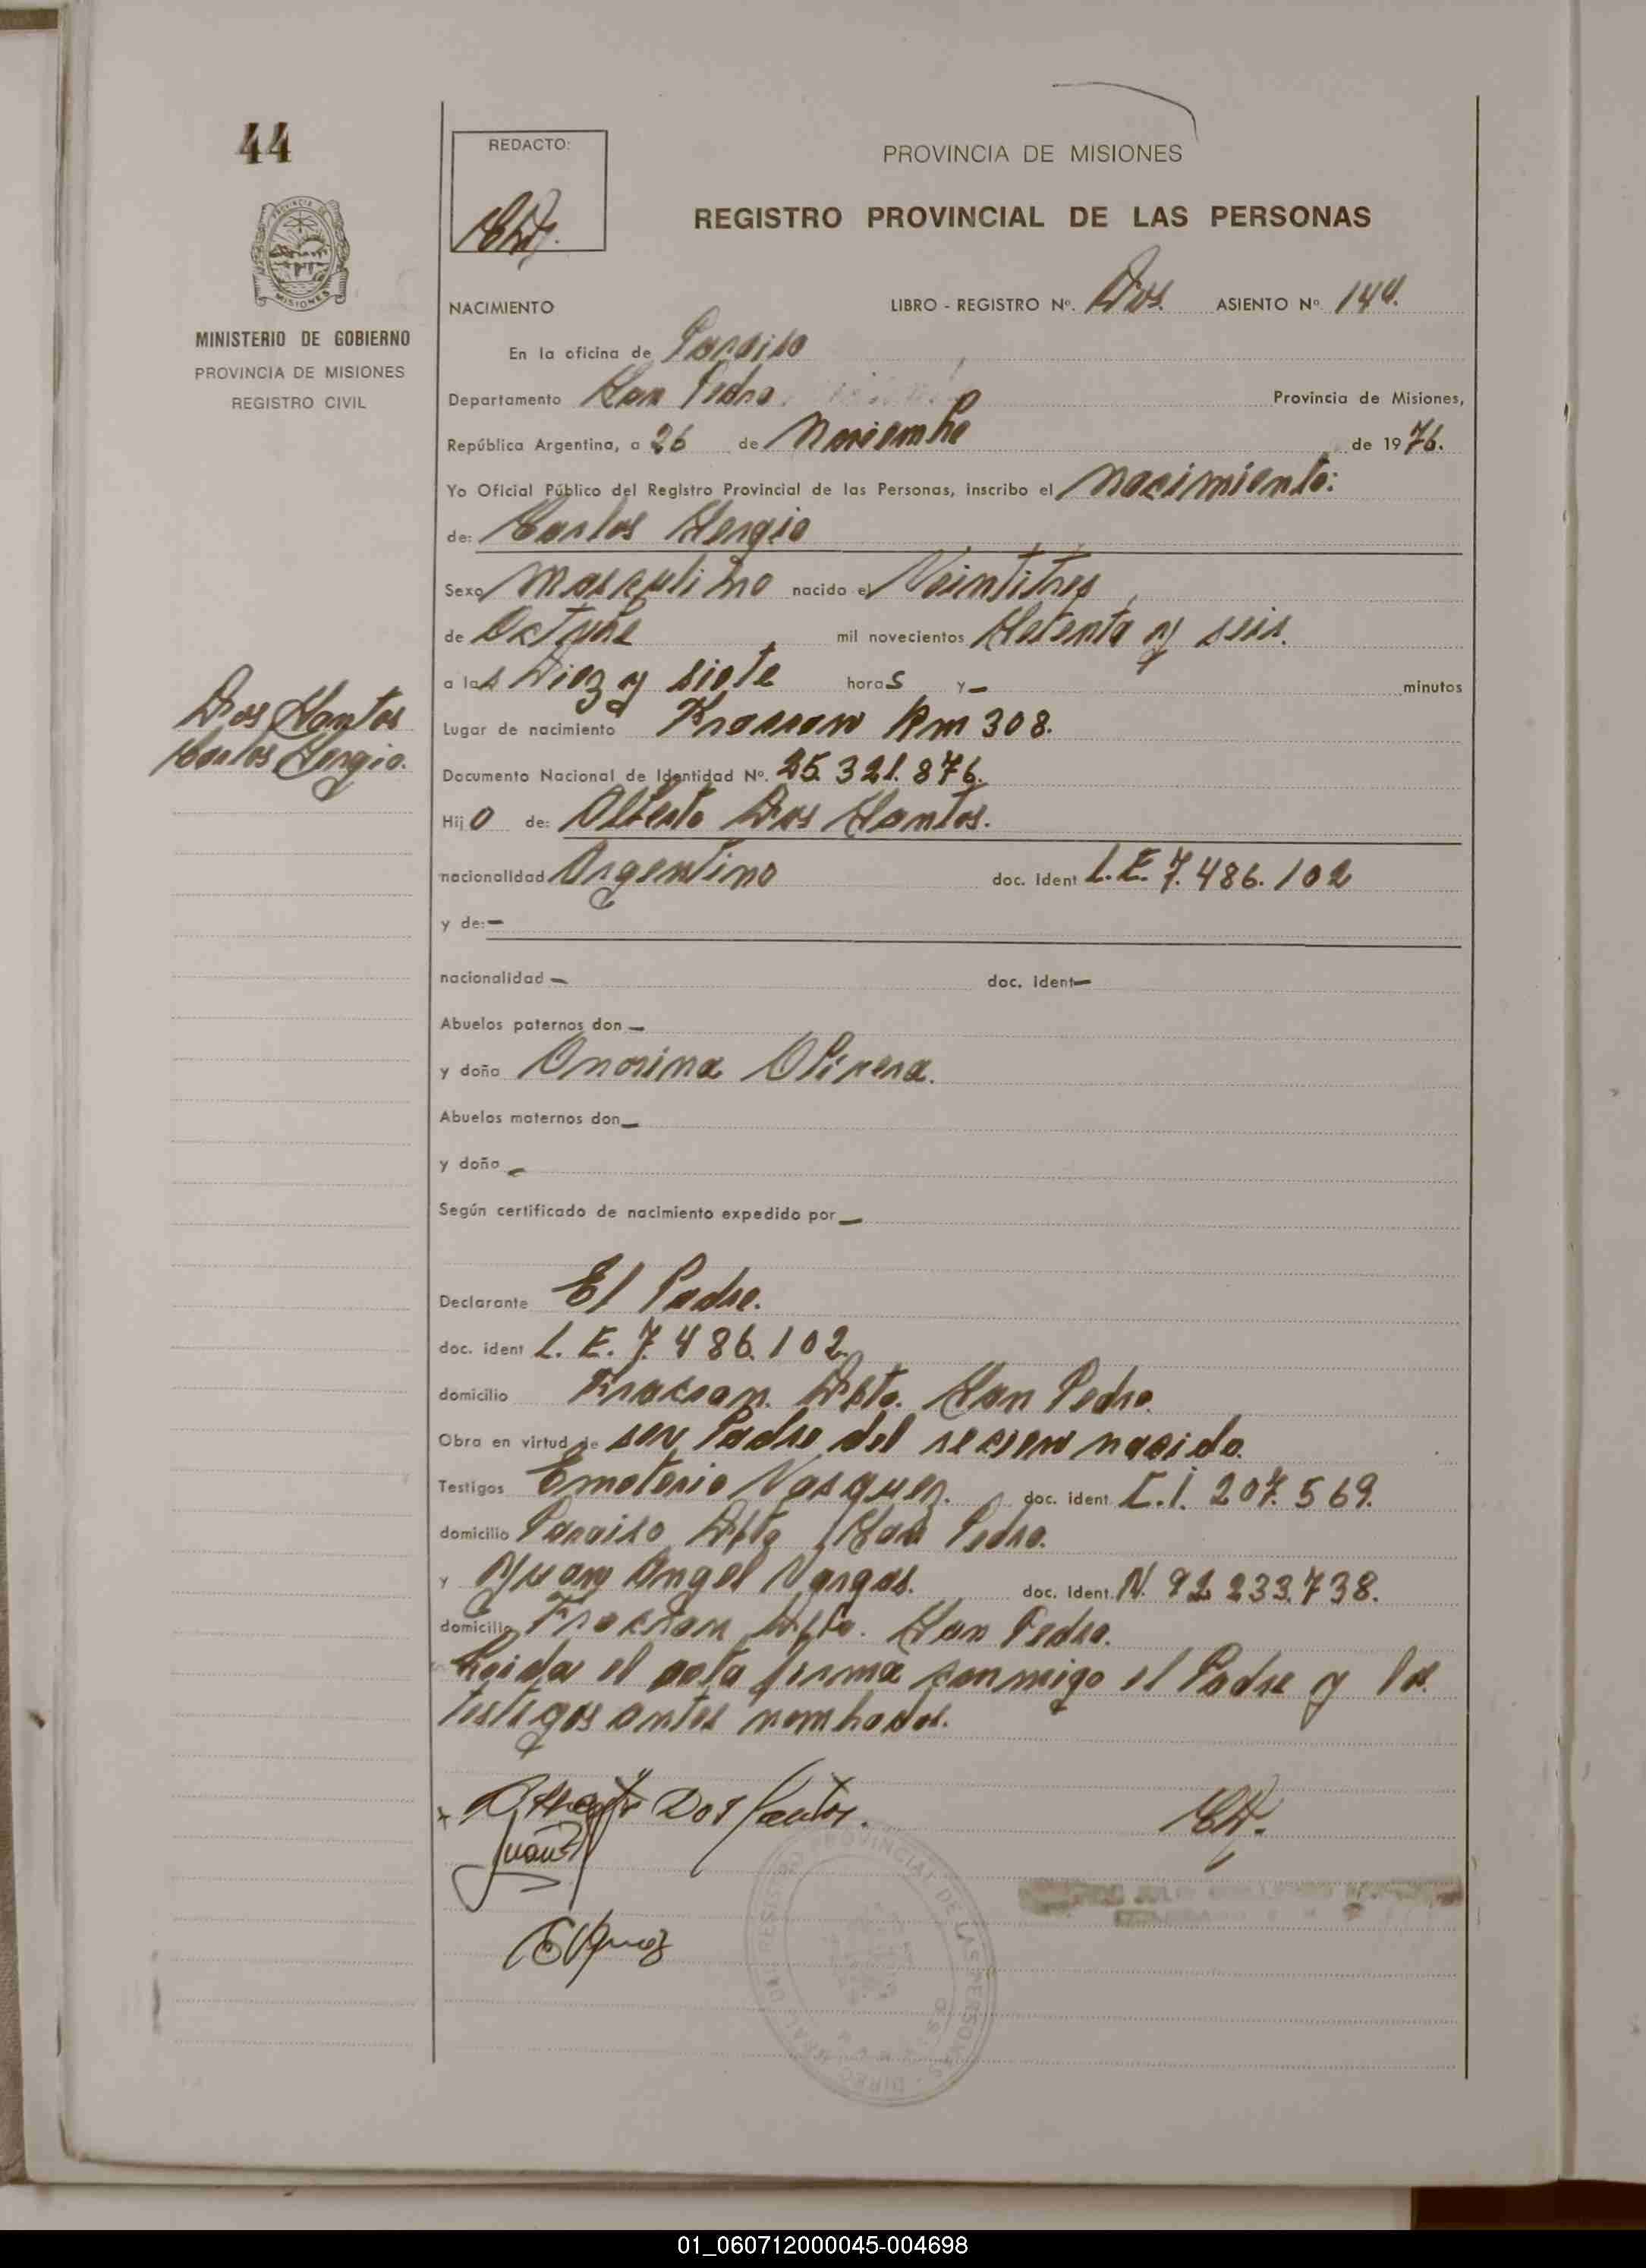 44
REDACTO:
PROVINCIA DE MISIONES
REGISTRO PROVINCIAL DE LAS PERSONAS
MINISTERIO DE GOBIERNO
PROVINCIA DE MISIONES
REGISTRO CIVIL
NACIMIENTO LIBRO - REGISTRO Nº. Dos. ASIENTO Nº. 144.
En la oficina de Paraiso
Departamento San Pedro. Provincia de Misiones,
República Argentina, a 26 de Noviembre de 1976.
Yo Oficial Público del Registro Provincial de las Personas, inscribo el Nacimiento:
de: Carlos Sergio
Sexo Masculino nacido el Veintitres
de Octubre mil novecientos Setenta y seis.
a las Diez y siete horas y — minutos
Dos Santos
Carlos Sergio.
Lugar de nacimiento Fracran Km 308.
Documento Nacional de Identidad Nº. 25.321.876.
Hijo de: Alberto Dos Santos.
nacionalidad Argentino doc. Ident L.E. 7.486.102
y de: —
nacionalidad — doc. Ident —
Abuelos paternos don —
y doña Onorina Olivera.
Abuelos maternos don —
y doña —
Según certificado de nacimiento expedido por —
Declarante El Padre.
doc. ident L.E. 7.486.102.
domicilio Fracran. Dpto. San Pedro.
Obra en virtud de ser Padre del recien nacido.
Testigos Emeterio Vasquez. doc. ident. C.I. 207.569.
domicilio Paraiso Dpto San Pedro.
y Juan Angel Vargas. doc. Ident. N. 92.233.738.
domicilio Fracran Dpto. San Pedro.
Leida el acta firma conmigo el Padre y los
testigos antes nombrados.
Dos Santos.
Juan
PROVINCIAL DE LAS PERSONAS
01_060712000045-004698